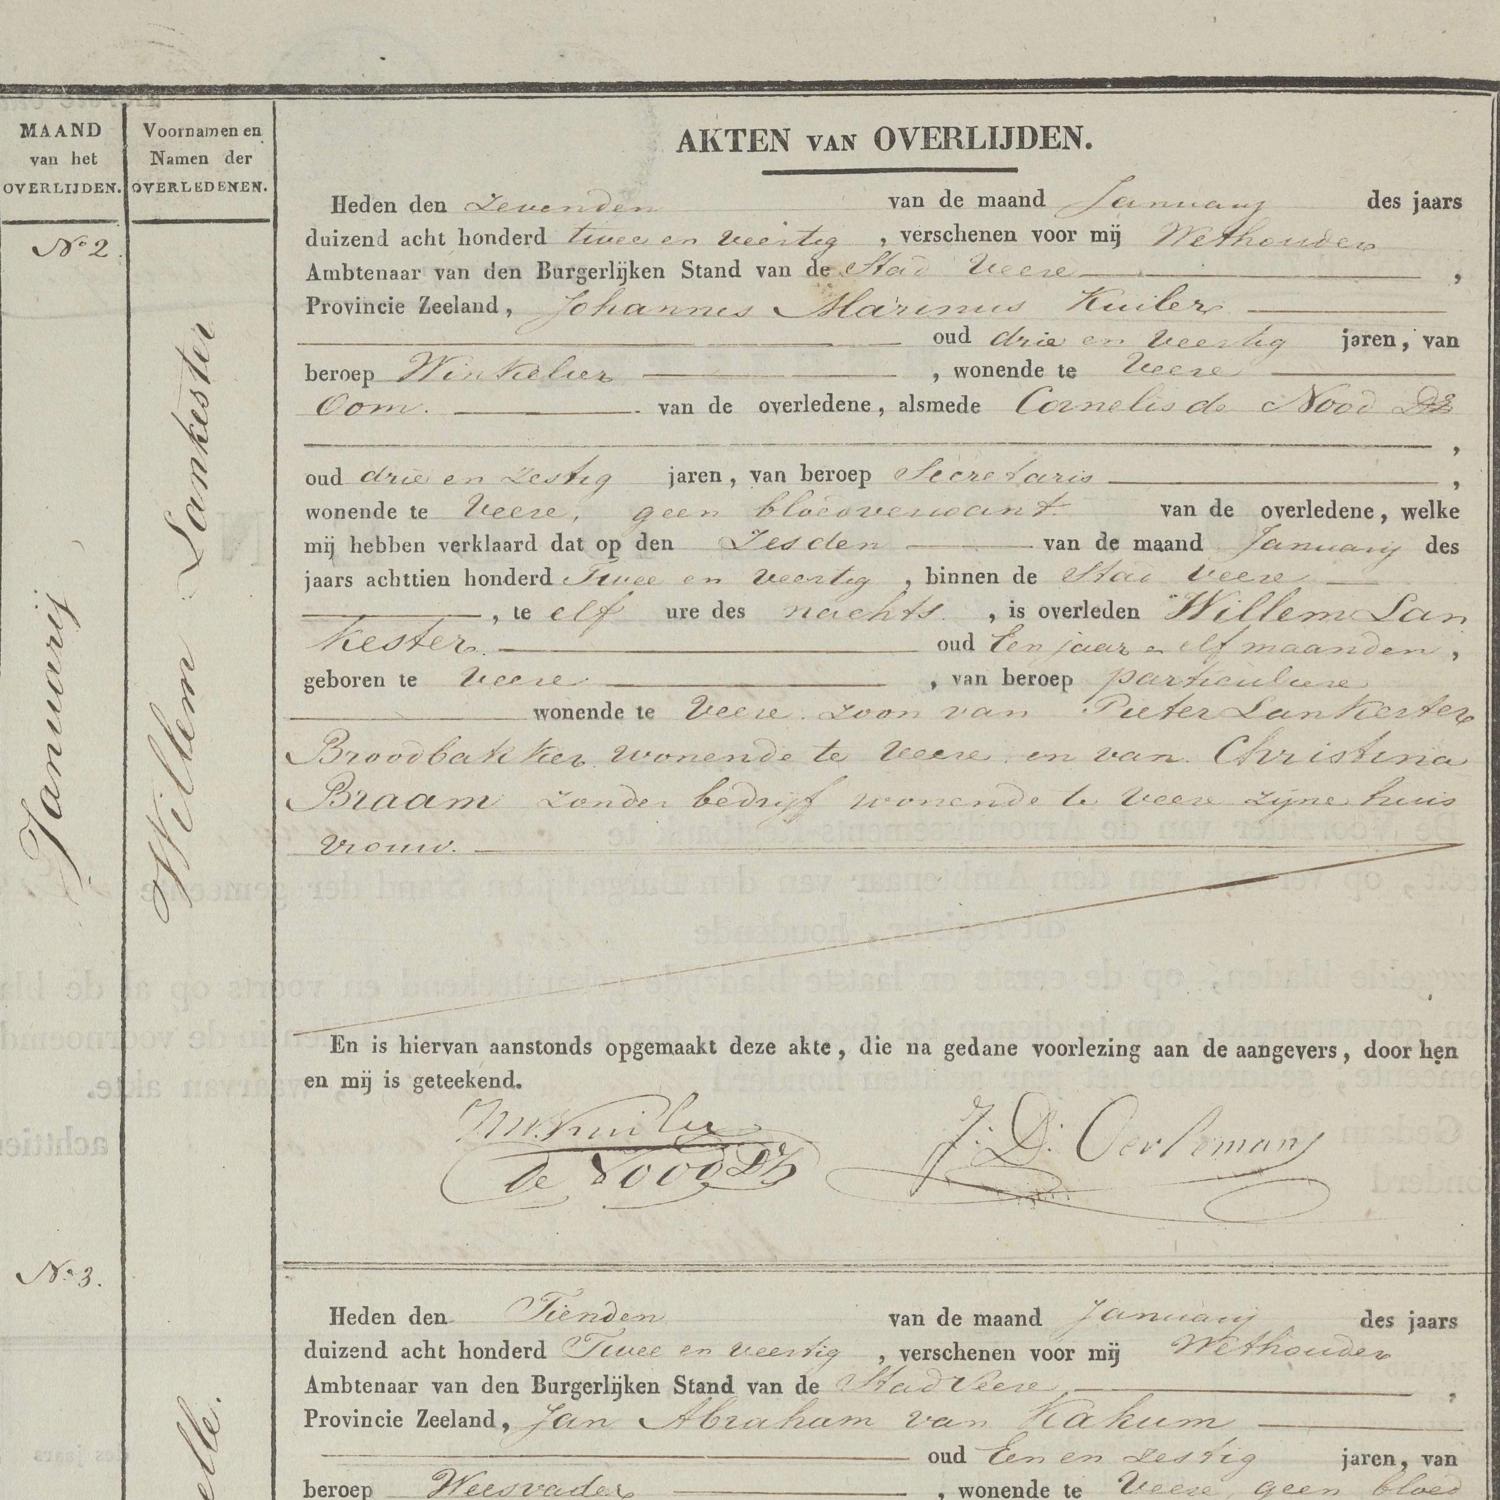 AKTEN VAN OVERLIJDEN.
MAAND
van het
OVERLIJDEN.
Voornamen en
Namen der
OVERLEDENEN.
No 2.
Januarij
Willem Lankester
Heden den zevenden van de maand Januarij des jaars
duizend acht honderd twee en veertig , verschenen voor mij Wethouder
Ambtenaar van den Burgerlijken Stand van de Stad Veere ,
Provincie Zeeland, Johannes Marinus Kuiler
oud drie en veertig jaren, van
beroep Winkelier , wonende te Veere
Oom. van de overledene, alsmede Cornelis de Nood Dz
,
oud drie en zestig jaren, van beroep Secretaris ,
wonende te Veere, geen bloedverwant van de overledene, welke
mij hebben verklaard dat op den Zesden van de maand Januarij des
jaars achttien honderd Twee en veertig , binnen de Stad Veere
, te elf ure des nachts , is overleden Willem Lan
kester. oud Een jaar en elf maanden ,
geboren te Veere , van beroep particuliere
wonende te Veere zoon van Pieter Lankester
Broodbakker wonende te Veere en van Christina
Braam zonder bedrijf wonende te Veere zijne huis
vrouw.
En is hiervan aanstonds opgemaakt deze akte, die na gedane voorlezing aan de aangevers, door hen
en mij is geteekend.
JM. Kuiler
de Nood Dz
J: D: Oerlemans
No 3.
elle.
Heden den Tienden van de maand Januarij des jaars
duizend acht honderd Twee en veertig , verschenen voor mij Wethouder
Ambtenaar van den Burgerlijken Stand van de Stad Veere ,
Provincie Zeeland, Jan Abraham van Kakum
oud Een en zestig jaren, van
beroep Weesvader , wonende te Veere, geen bloed